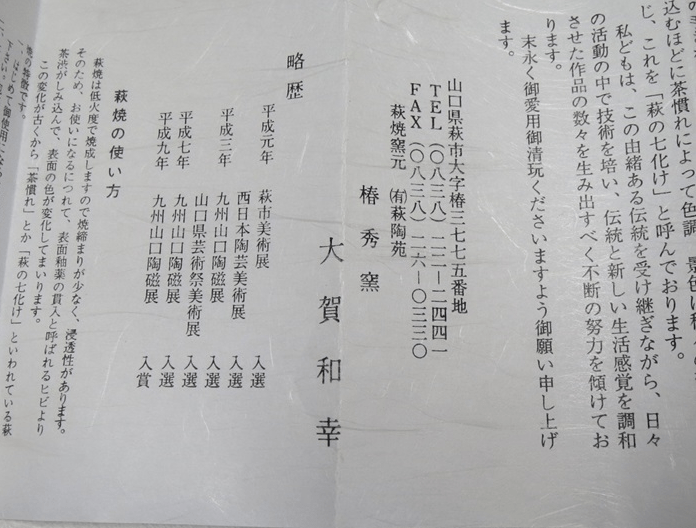 込むほどに茶慣れによって色調、景色に
じ、これを「萩の七化け」と呼んでおります。
私どもは、この由緒ある伝統を受け継ぎながら、日々
の活動の中で技術を培い、伝統と新しい生活感覚を調和
させた作品の数々を生み出すべく不断の努力を傾けてお
ります。
末永く御愛用御清玩くださいますよう御願い申し上げ
ます。
山口県萩市大字椿三七七五番地
TEL（〇八三八）二二―二四四一
FAX（〇八三八）二六―〇三三〇
萩焼窯元 ㈲萩陶苑
椿秀窯
大賀和幸
略歴
平成元年 萩市美術展 入選
西日本陶芸美術展 入選
平成三年 九州山口陶磁展 入選
山口県芸術祭美術展 入選
平成七年 九州山口陶磁展 入選
平成九年 九州山口陶磁展 入賞
萩焼の使い方
萩焼は低火度で焼成しますので焼締まりが少なく、浸透性があります。
そのため、お使いになるにつれて、表面釉薬の貫入と呼ばれるヒビより
茶渋がしみ込んで、表面の色が変化してまいります。
この変化が古くから「茶慣れ」とか「萩の七化け」といわれている萩
焼の特徴です。
一、はじめて御使用になる
下さい。